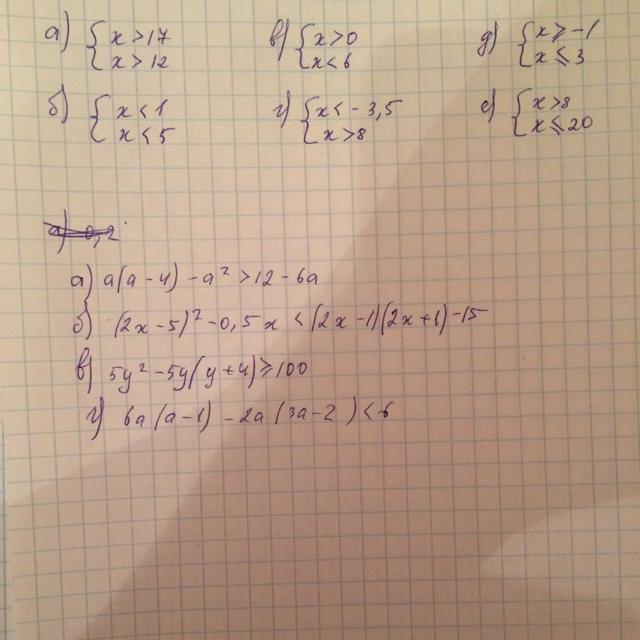 а) { x > 17
x > 12
в) { x > 0
x < 6
д) { x ≥ -1
x ≤ 3
б) { x < 1
x ≤ 5
г) { x < -3,5
x > 8
е) { x > 8
x ≤ 20
а) a(a-4) - a² > 12 - 6a
б) (2x-5)² - 0,5x < (2x-1)(2x+1) - 15
в) 5y² - 5y(y+4) ≥ 100
г) 6a(a-1) - 2a(3a-2) < 6